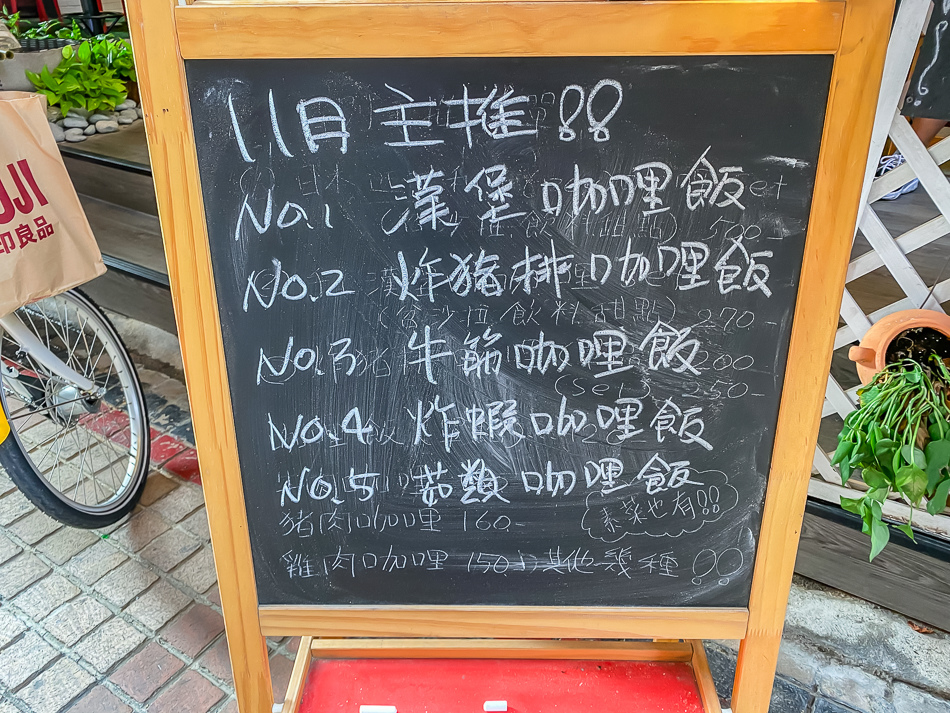 11月 主推!!
No.1 漢堡咖哩飯
No.2 炸豬排咖哩飯
(含沙拉 飲料 甜點) 270
No.3 牛筋咖哩飯
(set 250-
No.4 炸蝦咖哩飯
No.5 菇類咖哩飯
素菜也有!!
豬肉咖哩 160-
雞肉咖哩 150
其他幾種
UJI
印良品